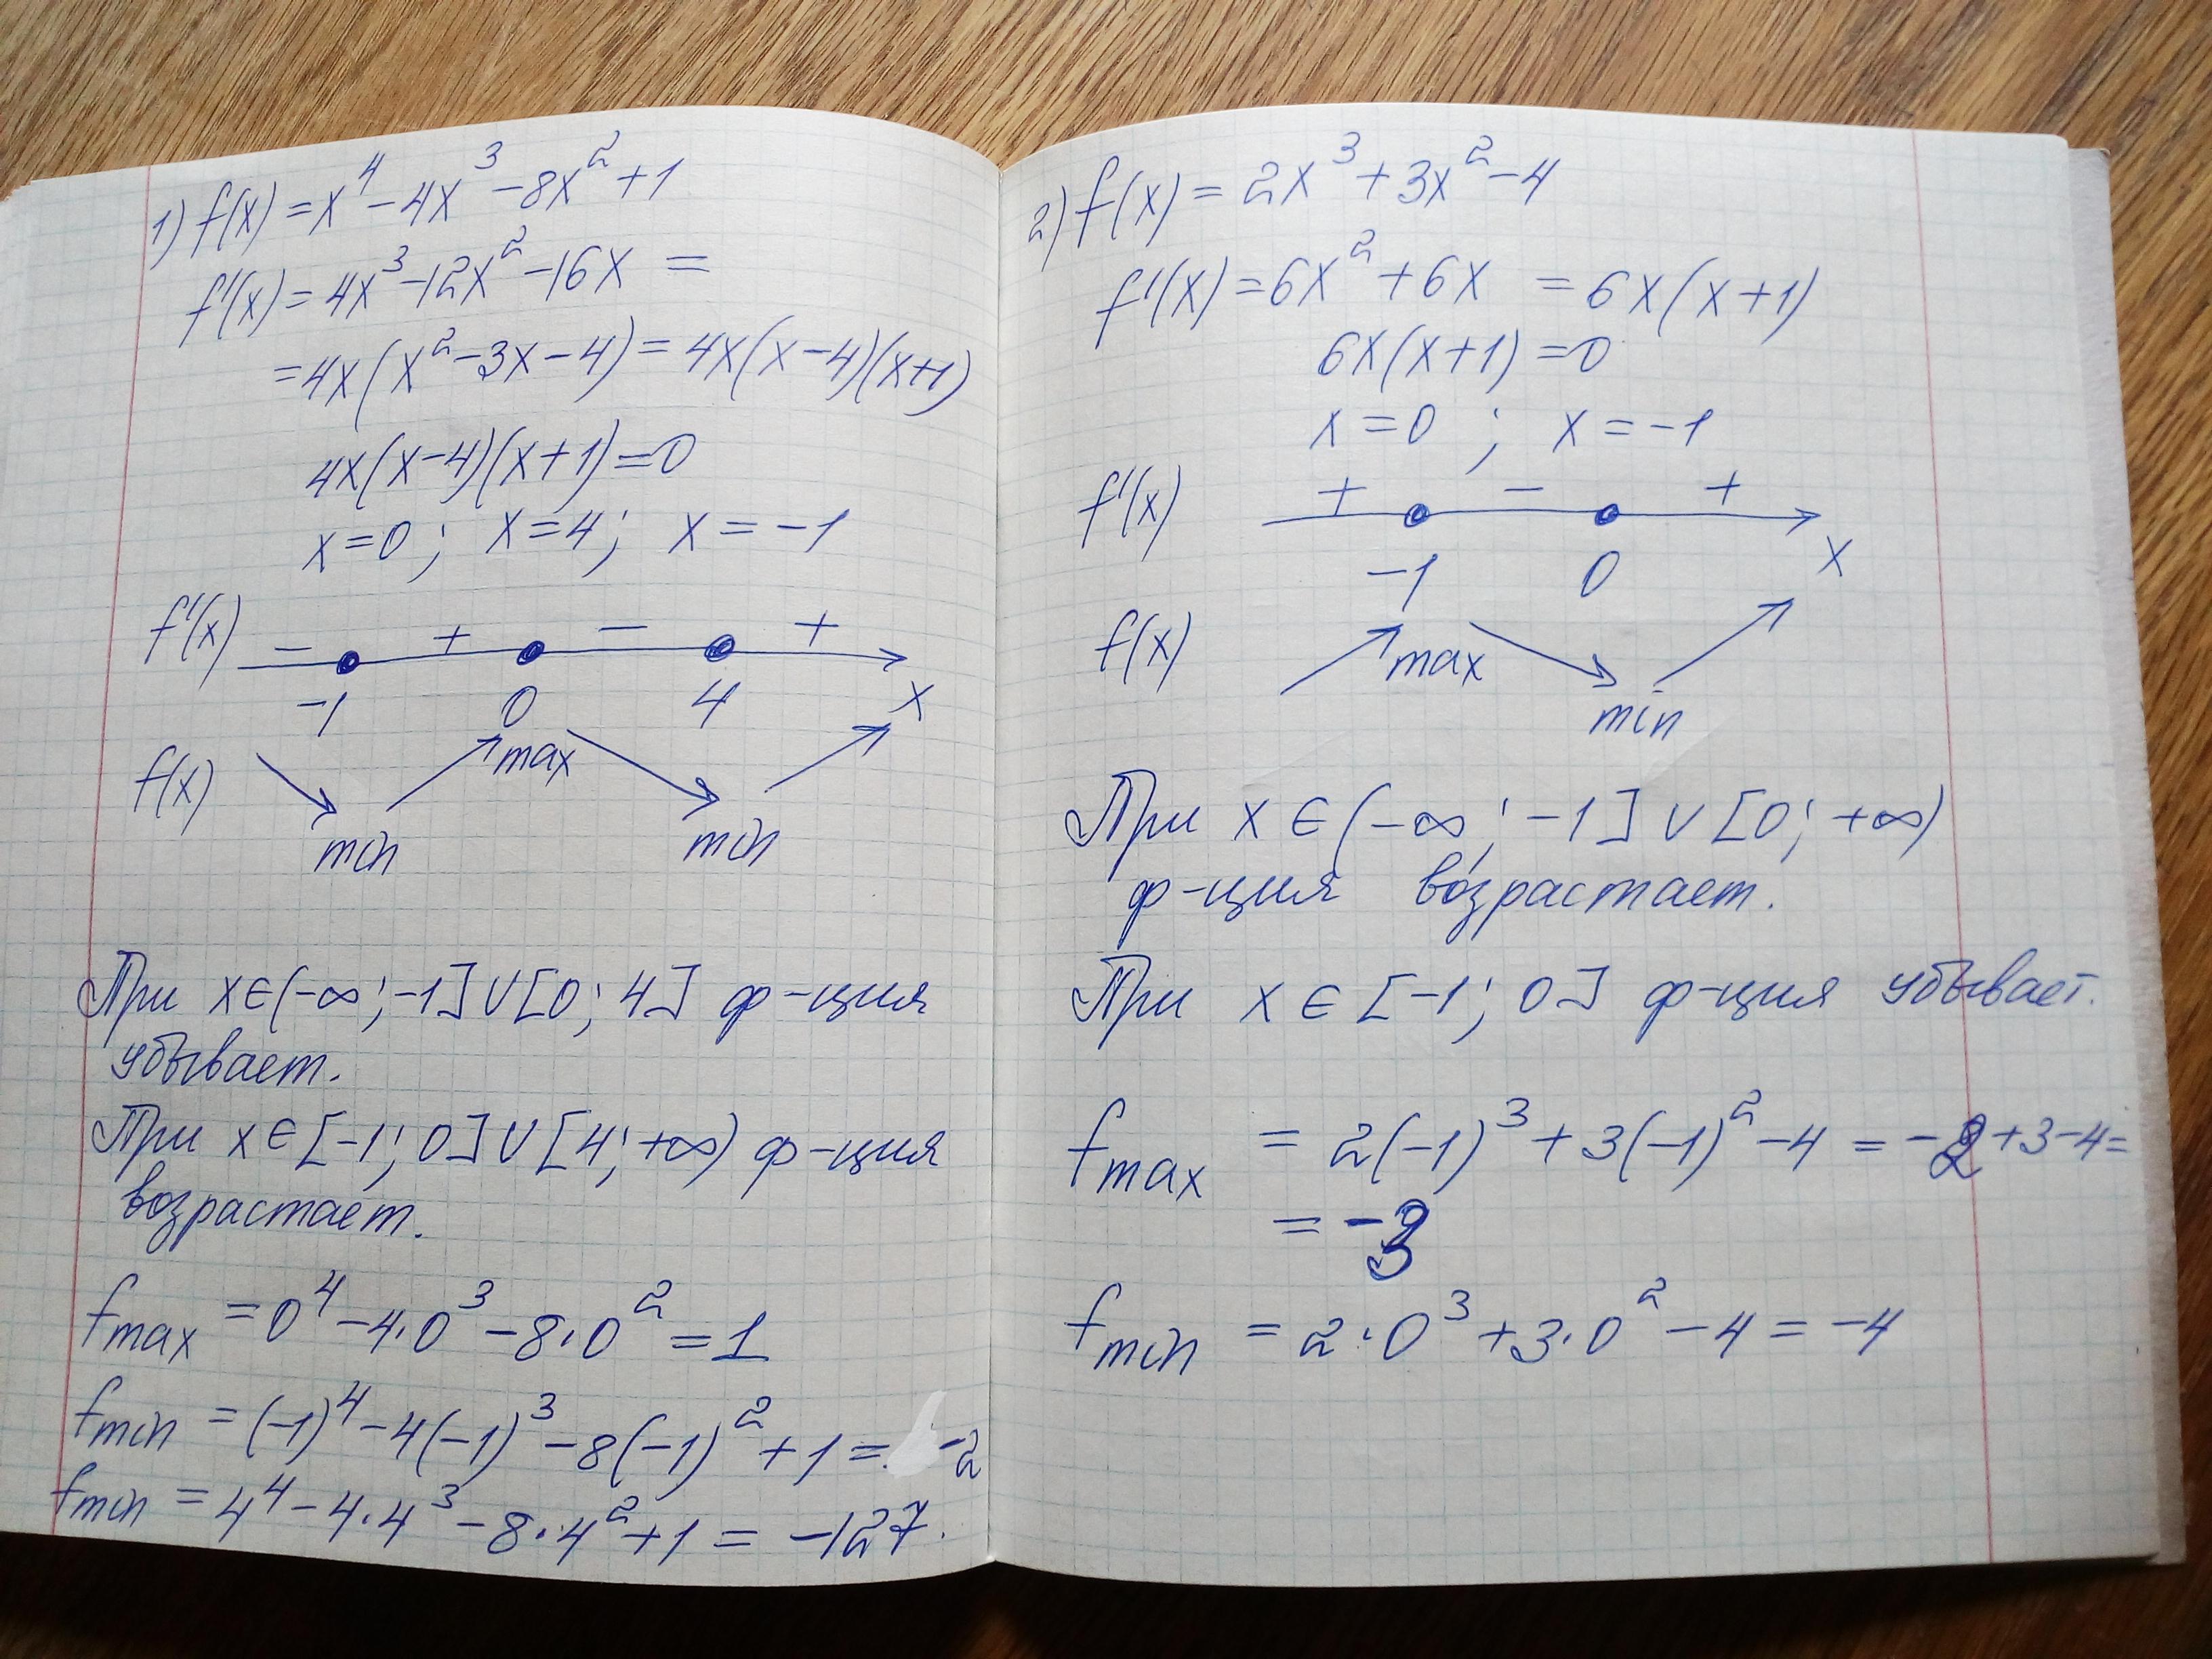 1) f(x) = x⁴ - 4x³ - 8x² + 1
f'(x) = 4x³ - 12x² - 16x =
= 4x(x² - 3x - 4) = 4x(x - 4)(x+1)
4x(x-4)(x+1) = 0
x = 0 ; x = 4 ; x = -1
f'(x) - + - +
-1 0 4 x
f(x) max
min min
При x ∈ (-∞; -1] ∪ [0; 4] ф-ция
убывает.
При x ∈ [-1; 0] ∪ [4; +∞) ф-ция
возрастает.
f max = 0⁴ - 4·0³ - 8·0² = 1
f min = (-1)⁴ - 4(-1)³ - 8(-1)² + 1 = -2
f min = 4⁴ - 4·4³ - 8·4² + 1 = -127.
2) f(x) = 2x³ + 3x² - 4
f'(x) = 6x² + 6x = 6x(x+1)
6x(x+1) = 0
x = 0 ; x = -1
f'(x) + - +
-1 0 x
f(x) max
min
При x ∈ (-∞; -1] ∪ [0; +∞)
ф-ция возрастает.
При x ∈ [-1; 0] ф-ция убывает.
f max = 2(-1)³ + 3(-1)² - 4 = -2 + 3 - 4 =
= -3
f min = 2·0³ + 3·0² - 4 = -4